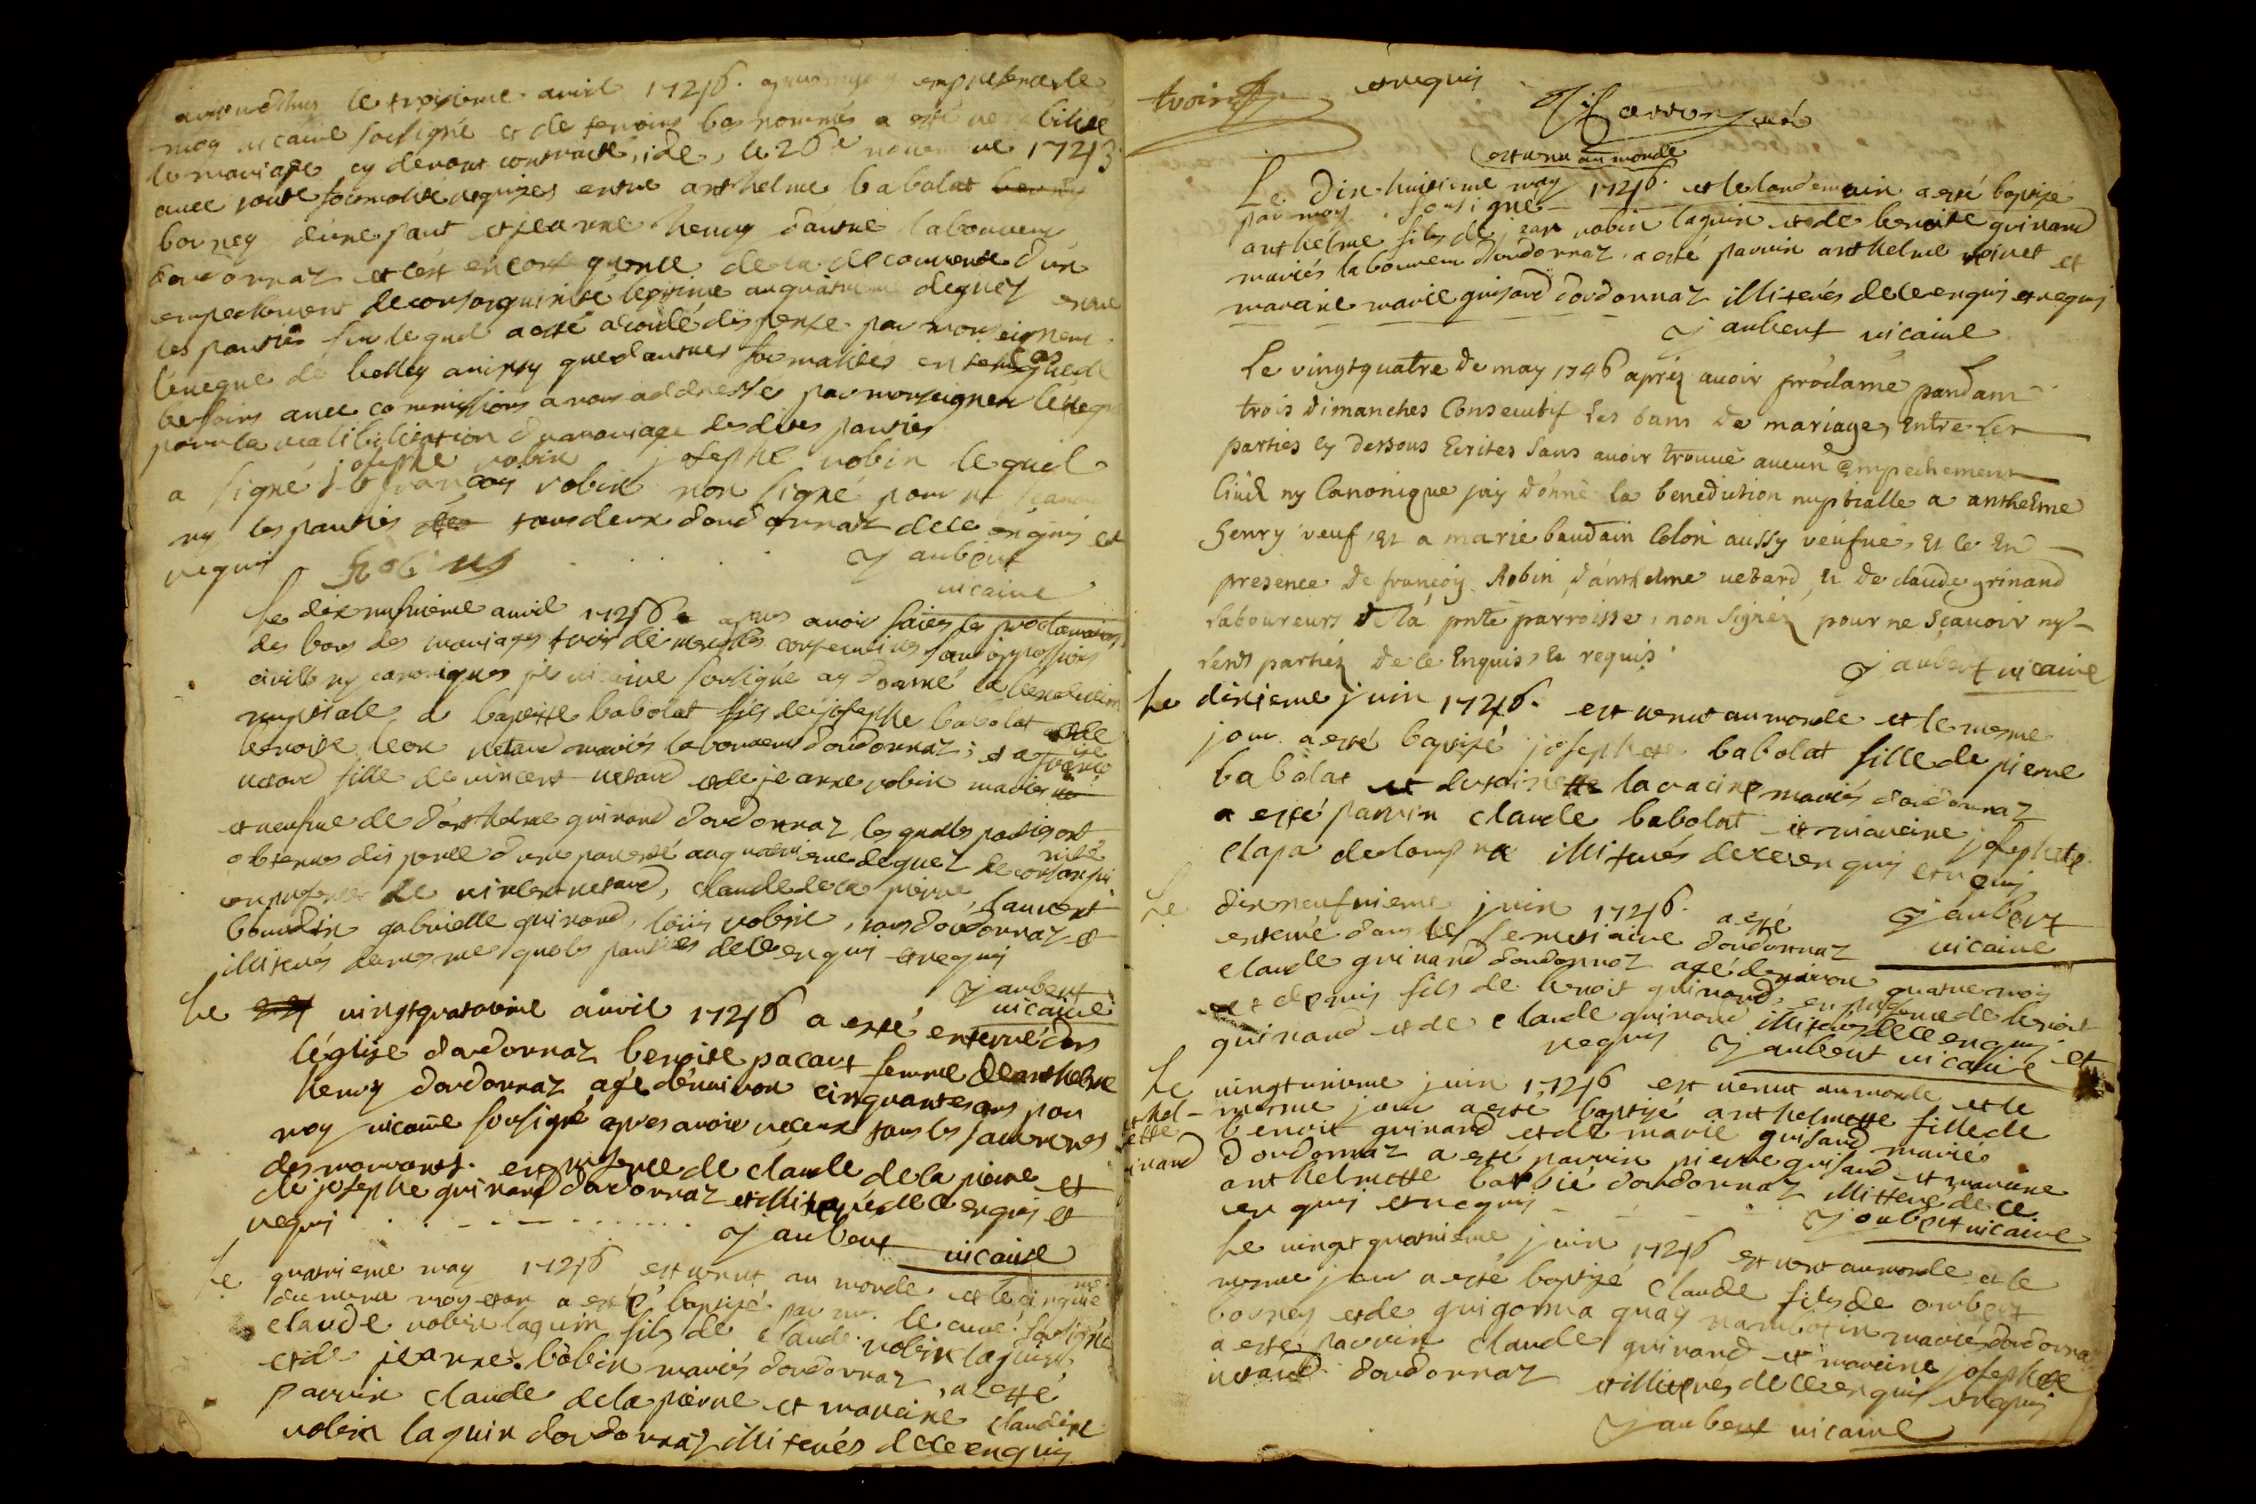 le troisieme avril 1746. en presence de
moy vicaire soûsigné et de temoins bas nommés a esté
le mariage cy devant contracté, le 26e 1743
avec toute formalité requises entre anthelme babolat
borney d'une part et jeanne henry d'autre laboureurs
dordonnaz et c'est en consequence de la decouverte d'un
empechement de consanguinité au quatrieme degrez entre
les parties sur le quel a esté acordé dispense par monseigneur
l'eveque de belley ainssy que d'autres formalités en
besoins avec commission a nous addressée par monseigneur l'eveque
pour la du mariage desdites parties
josephe robin josephe robin lequel
a signé françois robin non signé pour ne
ny les parties tous deux dordonnaz de ce enquis et
requis Robin J aubert
vicaire
Le dix avril 1746 apres avoir faites les proclamations
des bans des mariages trois dimenches consecutives sans oppositions
civille ny canoniques je vicaire soûsigné ay donné la benediction
nuptiale a baptiste babolat fils de josephe babolat et de
benoite leon mariés laboureurs dordonnaz; et a
fille de vincent et de jeanne robin mariés
et veufve de d'anthelme guinand dordonnaz les quelles parties ont
obtenues dispence d'une parenté au quatrieme degrez de consangui
nité
en presence de vincent claude de la pierre, laurent
baudin gabrielle guinand, loüis robin, tous dordonnaz et
illiterés de mesme que les parties de ce enquis et requis
J aubert
vicaire
Le vingtquatrieme avril 1746 a esté enterré dans
l'église dordonnaz benoite pacaut femme de anthelme
henry dordonnaz, agé d'environ cinquantes ans par
moy vicaire soûsigné apres avoir receux tous les sacremens
des mourants. en presence de claude de la pierre et
de josephe guinand dordonnaz et illiteré de ce enquis et
requis J aubert vicaire
Le quatrieme may 1746 est venut au monde et le cinquie
me
du mesme moys et an a esté baptizé par mr. le curé soûsigné
claude robin laquin fils de claude robin laquin
et de jeanne bobin mariés dordonnaz, a esté
parrin claude de la pierre et mareine claudine
robin laquin dordonnaz illiterés de ce enquis
et requis
curé
est venu au monde
Le Dix-huitieme may 1746. et le landemain a esté baptizé
par moy soûsigné
anthelme fils de jean robin laquin et de benoite guinand
mariés laboureurs dordonnaz. a esté parrin anthelme et
mareine marie guisard dordonnaz illiterés de ce enquis et requis
J aubert vicaire
Le vingtquatre de may 1746 aprés avoir proclamé pandant
trois dimanches Consecutif les bans de mariage, Entre les
parties cy dessous Ecrites Sans avoir trouvé aucun Empechement
Civil ny Canonique jay donné la benediction nuptialle a anthelme
henry veuf, et a marie baudain aussy veufve, et ce En
presence de françois Robin, d'anthelme vetard, et de claude guinand
Laboureurs de la pnte parroisse, non signéz pour ne sçavoir ny
Lesds partiez de ce Enquis, et requis
J aubert vicaire
Le dixieme juin 1746. est venut au monde et le mesme
jour. a esté baptizé josephete babolat fille de pierre
babolat et de lavacine mariés dordonnaz
a esté parrin claude babolat et mareine josephete
clapa de illiterés de ce enquis et requis
J aubert
vicaire
Le dix neufvieme juin 1746. a esté
enterré dans le semetiaire dordonnaz
claude guinand dordonnaz agé d'environ quatre mois
et demis fils de benoit guinand, en presence de benoit
guinand et de claude guinand illiterés de ce enquis et
requis J aubert vicaire
Le vingtunieme juin 1746 est venut au monde et le
mesme jour a esté baptizé anthelmette fille de
benoit guinand et de marie guisard mariés
dordonnaz a esté parrin pierre guisard et mareine
anthelmette barbié dordonnaz illitteré de ce
enquis et requis J aubert vicaire
Le vingt quatrieme juin 1746 est venut au monde et le
mesme jour a esté baptizé claude fils de ombert
borney et de guigonna quay mariés dordonnaz
a esté parrin claude guinand et mareine josephete
vetard dordonnaz et illiterés de ce enquis et requis
J aubert vicaire